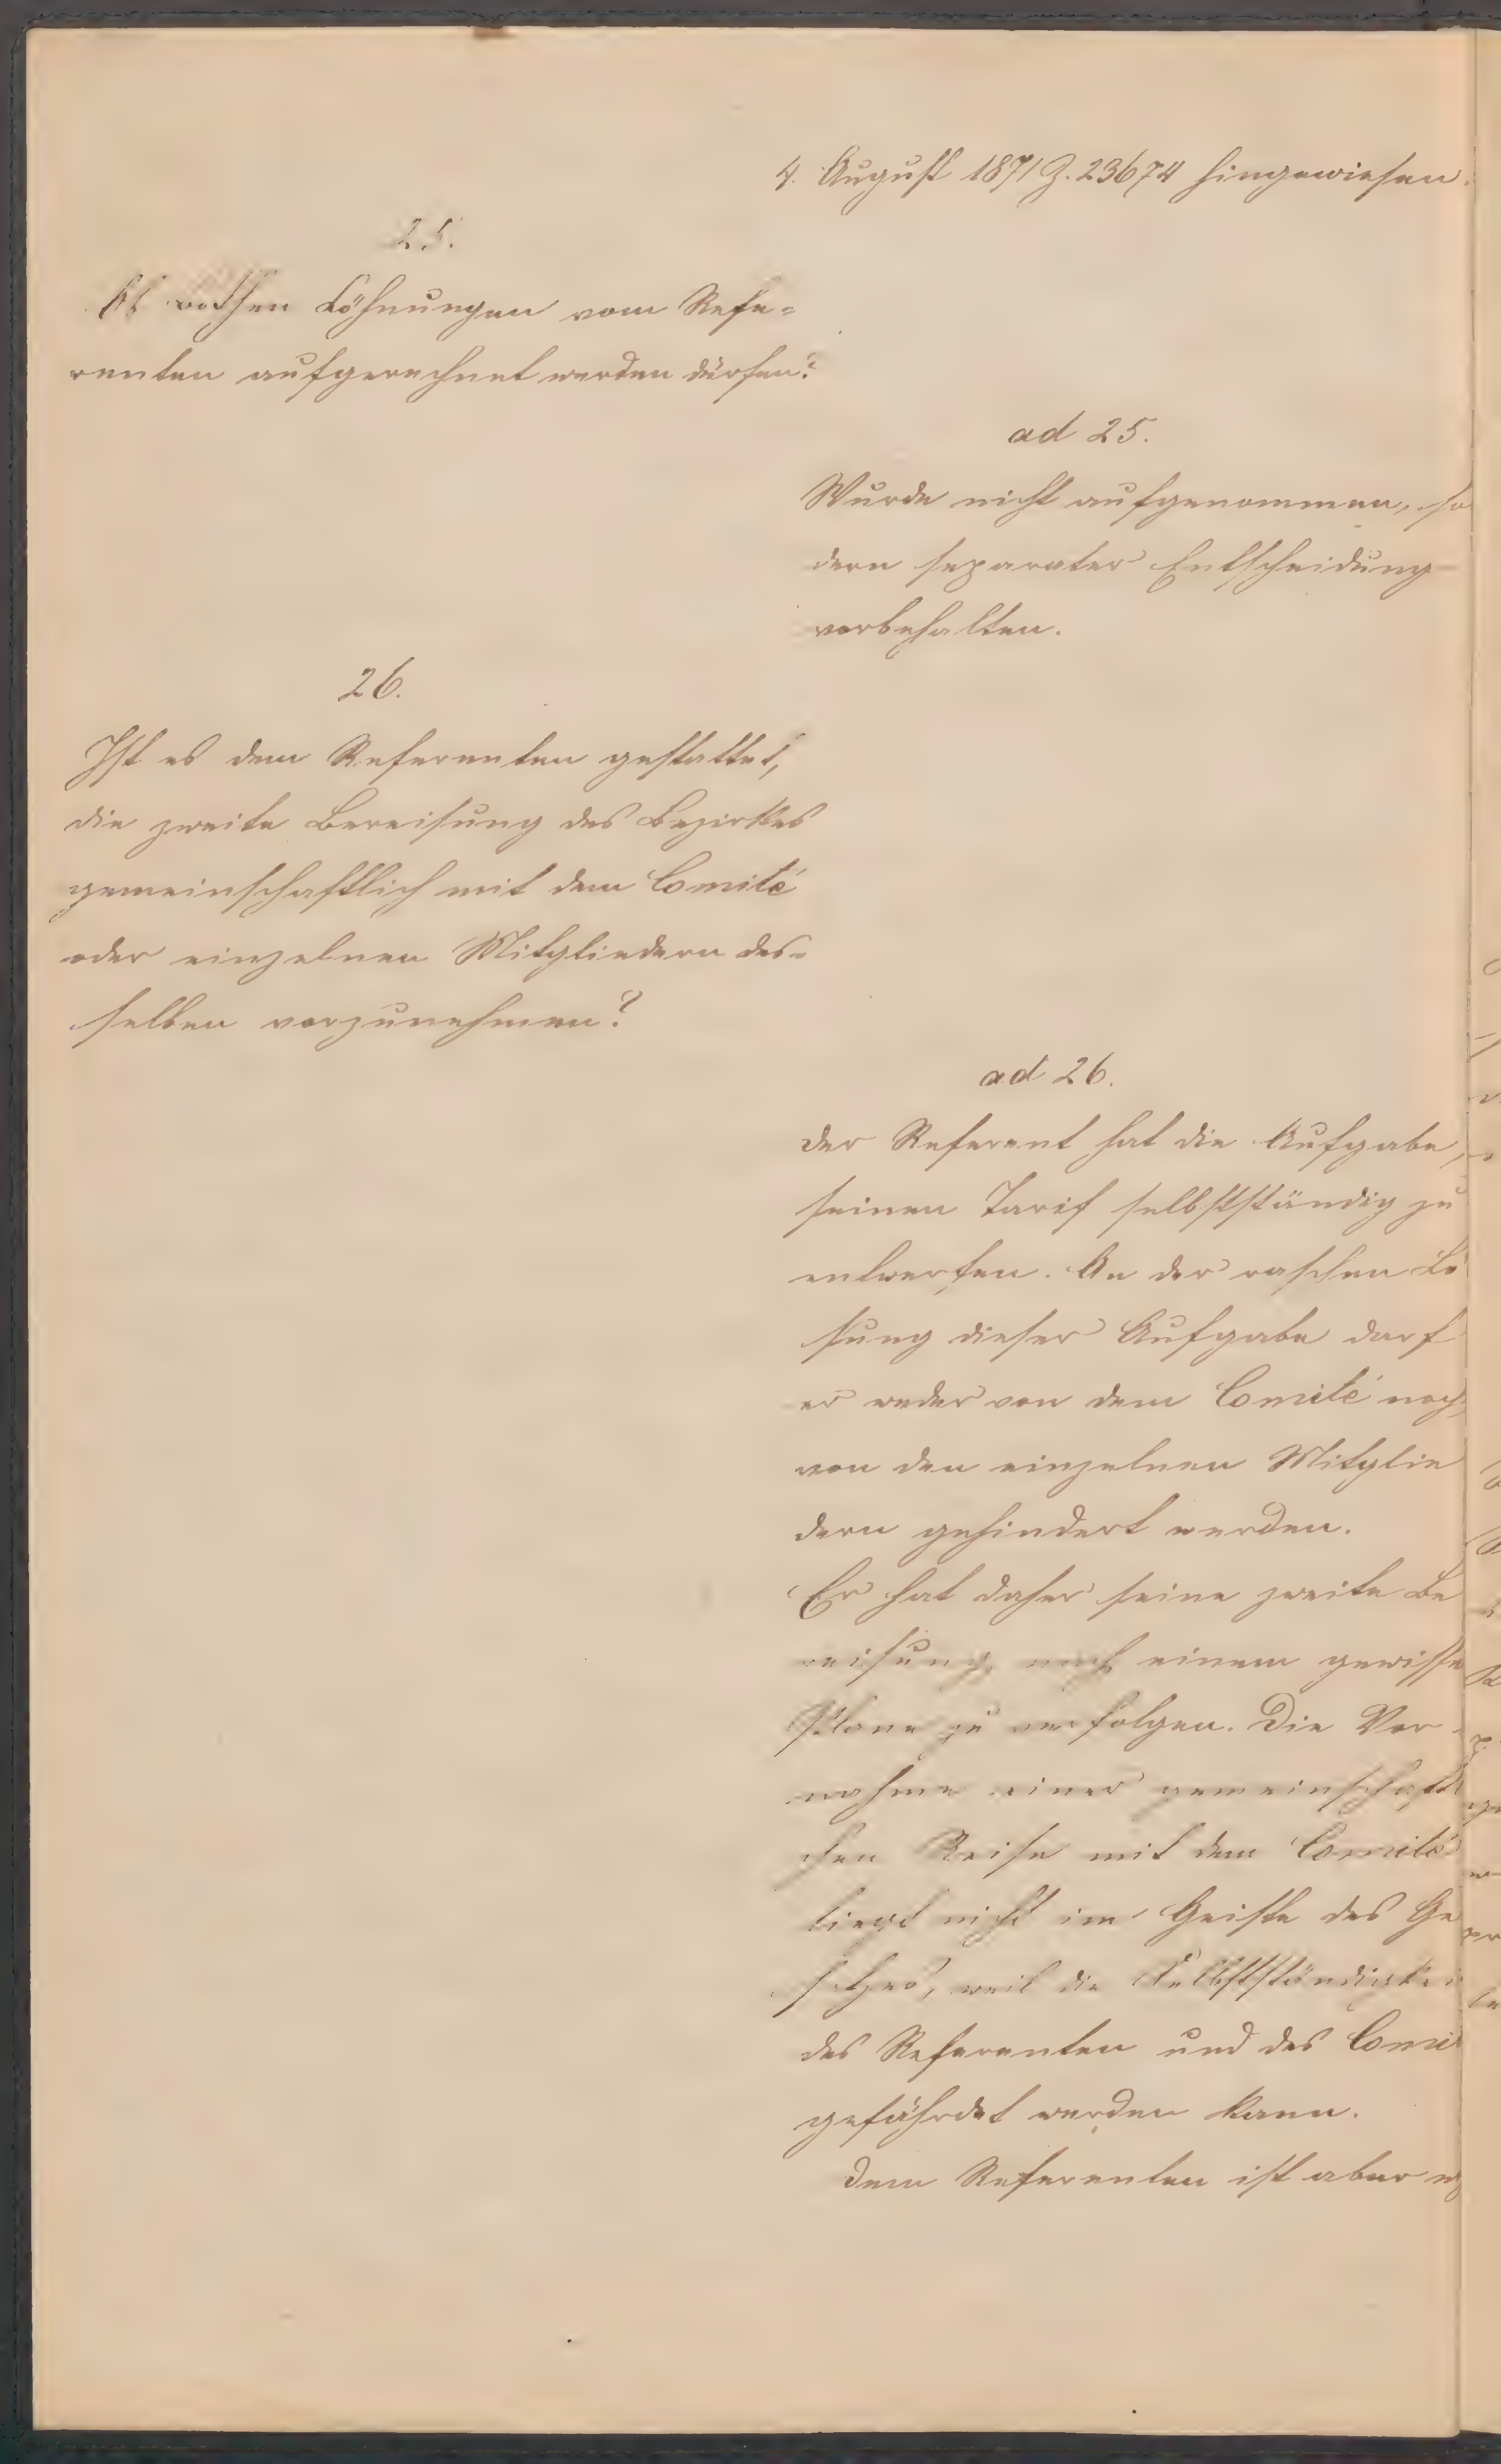 4. August 1871 Z. 23674 hingewiesen.
25.
Löhnungen vom Refe-
renten aufgerechnet werden dürfen?
ad 25.
Wurde nicht aufgenommen, so
dern separater Entscheidung
vorbehalten.
26.
Ist es dem Referenten gestattet,
die zweite Bereisung des Bezirkes
gemeinschaftlich mit dem Comité
oder einzelnen Mitgliedern des-
selben vorzunehmen?
ad 26.
Der Referent hat die Aufgabe,
seinen Tarif selbstständig zu
entwerfen. An der raschen Lö
sung dieser Aufgabe darf
er weder von dem Comité noch
von den einzelnen Mitglie
dern gehindert werden.
Er hat daher seine zweite Be
reisung nach einem gewisse
Plane zu verfolgen. Die Vor-
nahme einer gemeinschaftl
chen Reise mit dem Comité
liegt nicht im Geiste des Ge
setzes, weil die Selbstständigkei
des Referenten und des Comi
gefährdet werden kann.
Dem Referenten ist aber